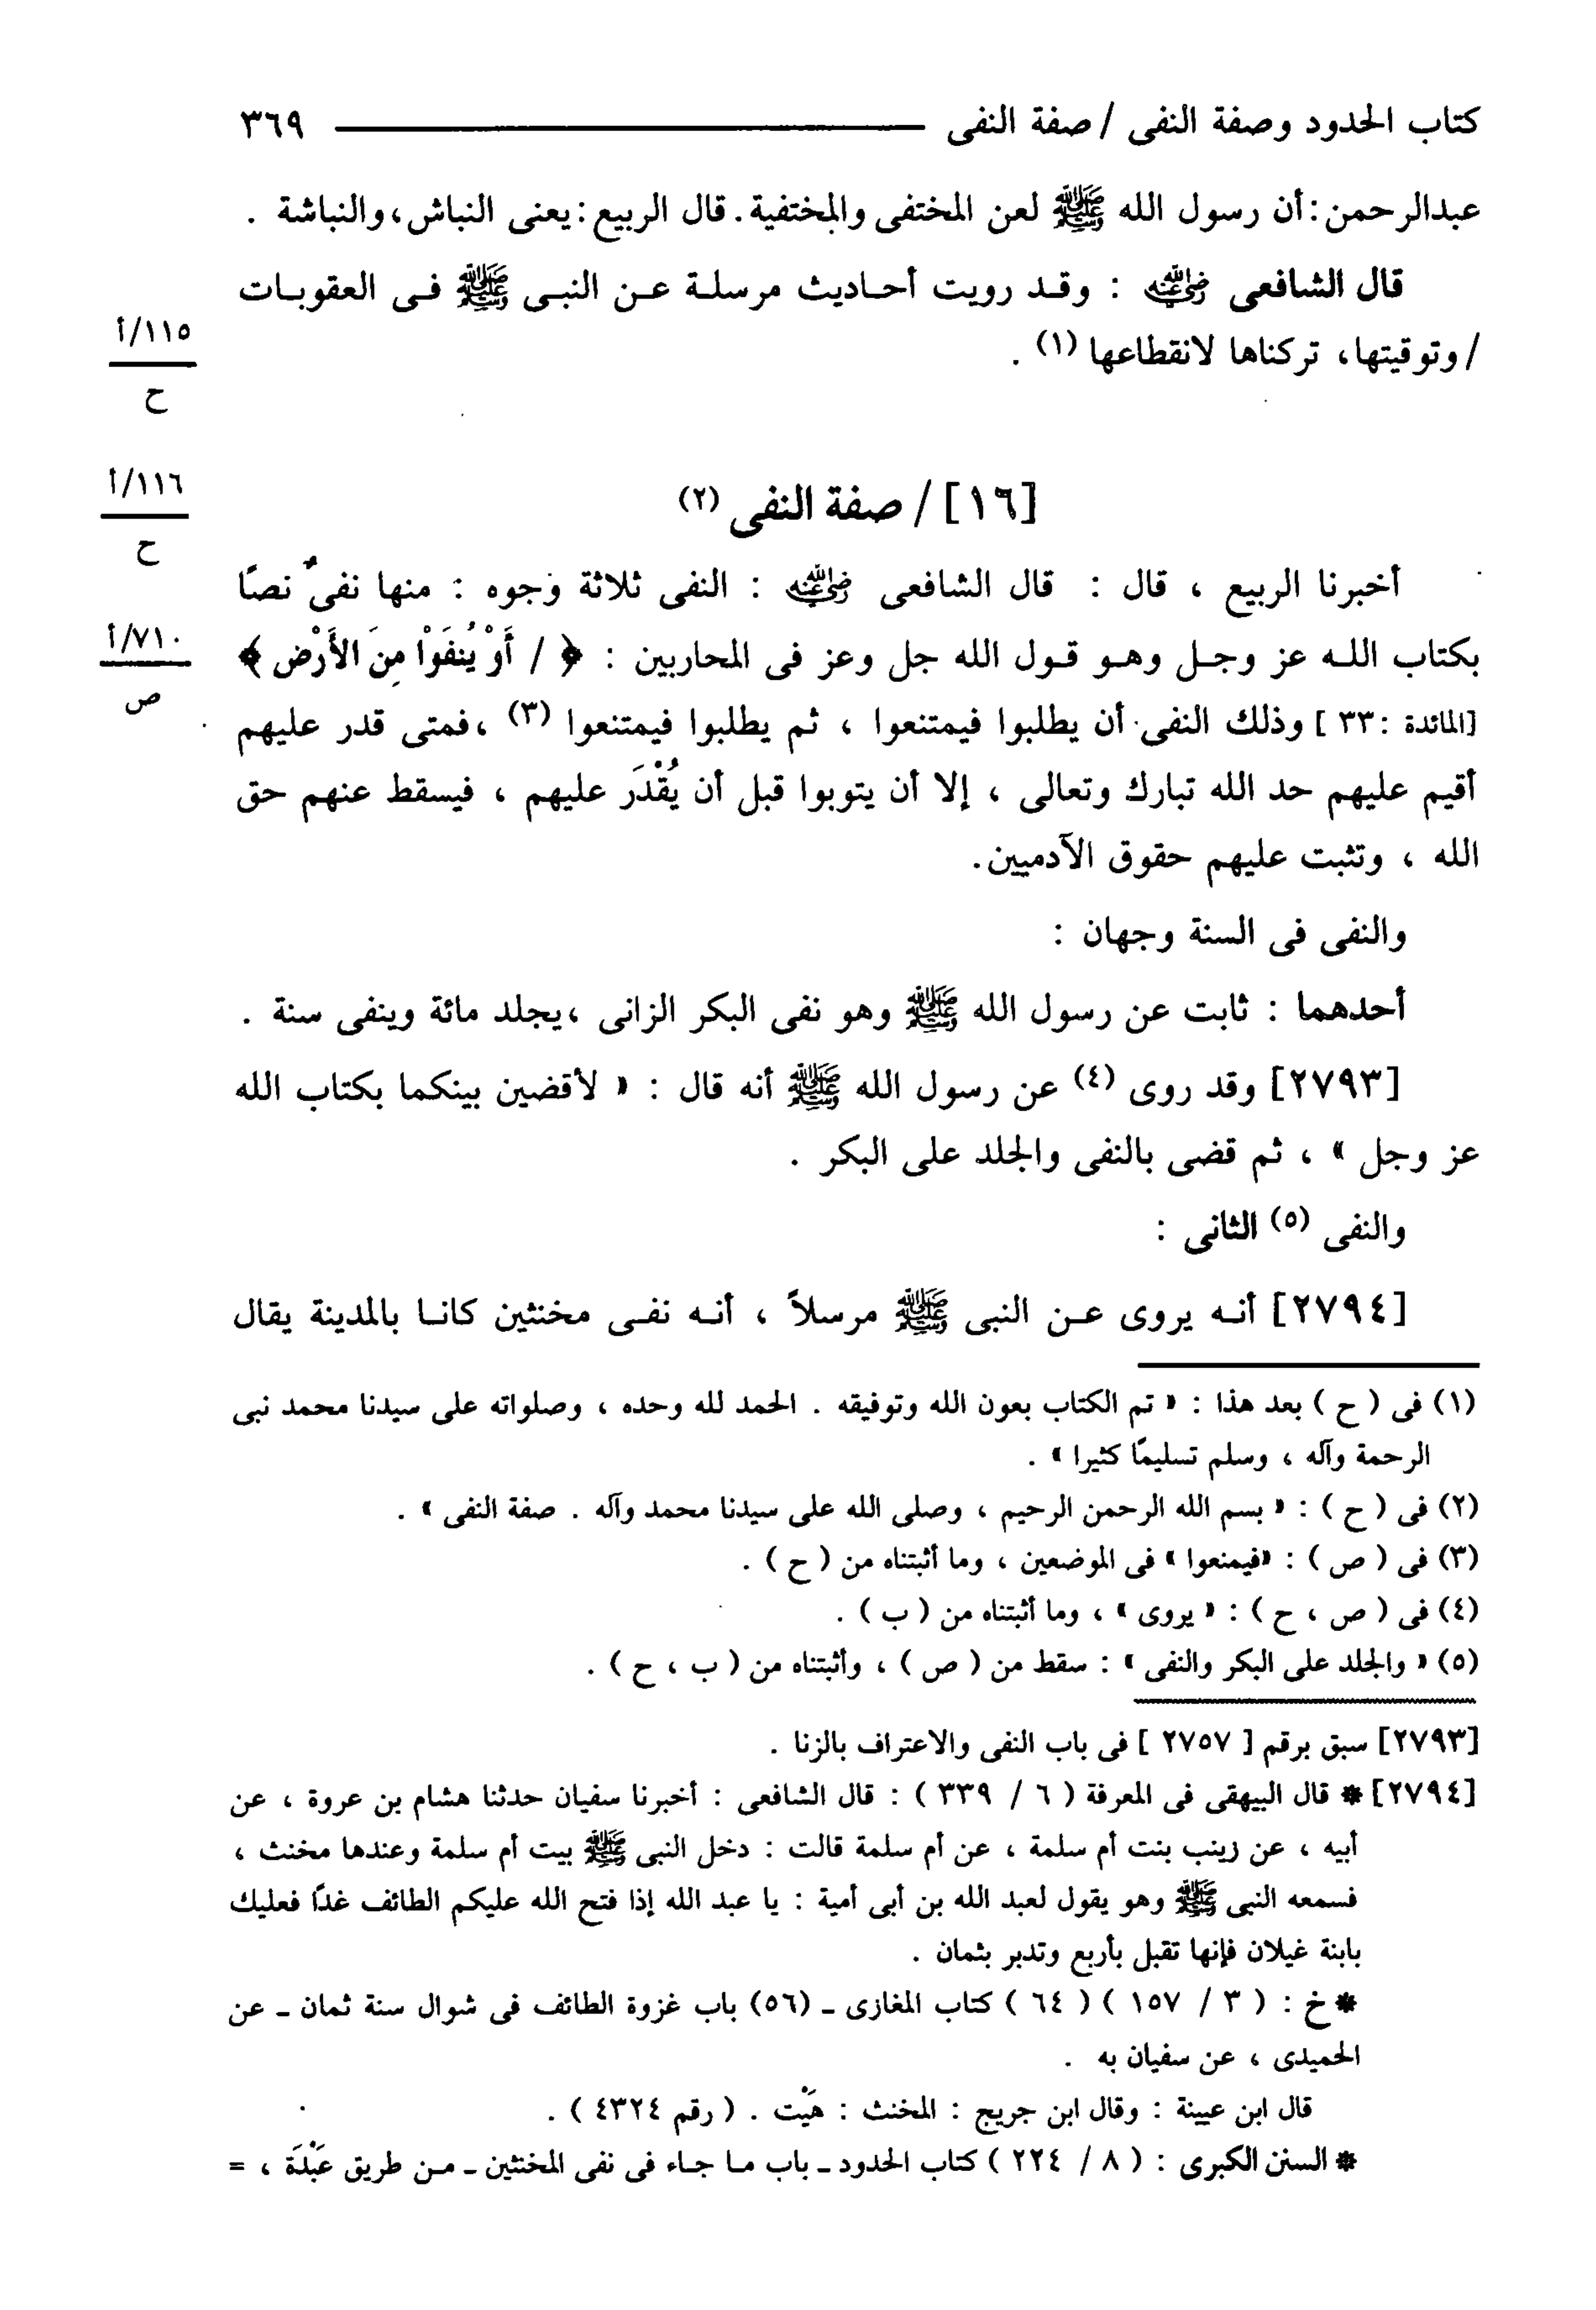 كتاب الحدود وصفة النفى / صفة النفى ٣٦٩
عبدالرحمن : أن رسول الله ﷺ لعن المختفى والمختفية . قال الربيع : يعنى النباش ، والنباشة .
قال الشافعى رضي الله عنه : وقد رويت أحاديث مرسلة عن النبى ﷺ فى العقوبات
/ وتوقيتها ، تركناها لانقطاعها (١) .
١١٥/أ
ح
[١٦] / صفة النفى (٢)
١١٦/أ
ح
أخبرنا الربيع ، قال : قال الشافعى رضي الله عنه : النفى ثلاثة وجوه : منها نفىٌ نصًا
بكتاب الله عز وجل وهو قول الله جل وعز فى المحاربين : ﴿ / أَوْ يُنفَوْا مِنَ الأَرْضِ ﴾
٧١٠/أ
ص
[المائدة : ٣٣ ] وذلك النفى أن يطلبوا فيمتنعوا ، ثم يطلبوا فيمتنعوا (٣) ، فمتى قدر عليهم
أقيم عليهم حد الله تبارك وتعالى ، إلا أن يتوبوا قبل أن يُقْدَر عليهم ، فيسقط عنهم حق
الله ، وتثبت عليهم حقوق الآدميين .
والنفى فى السنة وجهان :
أحدهما : ثابت عن رسول الله ﷺ وهو نفى البكر الزانى ، يجلد مائة وينفى سنة .
[٢٧٩٣] وقد روى (٤) عن رسول الله ﷺ أنه قال : « لأقضين بينكما بكتاب الله
عز وجل » ، ثم قضى بالنفى والجلد على البكر .
والنفى (٥) الثانى :
[٢٧٩٤] أنه يروى عن النبى ﷺ مرسلاً ، أنه نفى مخنثين كانا بالمدينة يقال
(١) فى ( ح ) بعد هذا : « تم الكتاب بعون الله وتوفيقه . الحمد لله وحده ، وصلواته على سيدنا محمد نبى
الرحمة وآله ، وسلم تسليمًا كثيرا » .
(٢) فى ( ح ) : « بسم الله الرحمن الرحيم ، وصلى الله على سيدنا محمد وآله . صفة النفى » .
(٣) فى ( ص ) : «فيمنعوا » فى الموضعين ، وما أثبتناه من ( ح ) .
(٤) فى ( ص ، ح ) : « يروى » ، وما أثبتناه من ( ب ) .
(٥) « والجلد على البكر والنفى » : سقط من ( ص ) ، وأثبتناه من ( ب ، ح ) .
[٢٧٩٣] سبق برقم [ ٢٧٥٧ ] فى باب النفى والاعتراف بالزنا .
[٢٧٩٤] * قال البيهقى فى المعرفة ( ٦ / ٣٣٩ ) : قال الشافعى : أخبرنا سفيان حدثنا هشام بن عروة ، عن
أبيه ، عن زينب بنت أم سلمة ، عن أم سلمة قالت : دخل النبى ﷺ بيت أم سلمة وعندها مخنث ،
فسمعه النبى ﷺ وهو يقول لعبد الله بن أبى أمية : يا عبد الله إذا فتح الله عليكم الطائف غدًا فعليك
بابنة غيلان فإنها تقبل بأربع وتدبر بثمان .
* خ : ( ٣ / ١٥٧ ) ( ٦٤ ) كتاب المغازى ـ (٥٦) باب غزوة الطائف فى شوال سنة ثمان ـ عن
الحميدى ، عن سفيان به .
قال ابن عيينة : وقال ابن جريج : المخنث : هَيْت . ( رقم ٤٣٢٤ ) .
* السنن الكبرى : ( ٨ / ٢٢٤ ) كتاب الحدود ـ باب ما جاء فى نفى المخنثين ـ من طريق عَبْدَة ، =